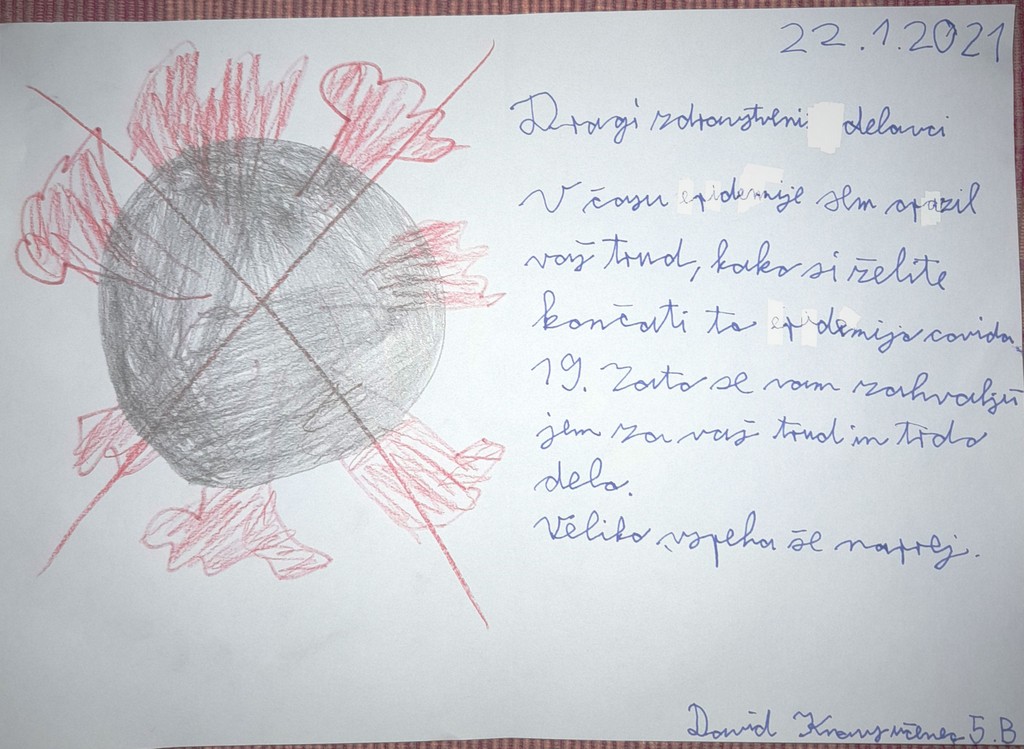 22.1.2021
Dragi zdravstveni delavci
V času epidemije sem opazil
vaš trud, kako si želite
končati to epidemijo covida-
19. Zato se vam zahvalju
jem za vaš trud in trdo
delo.
Veliko uspeha še naprej.
David 5.B